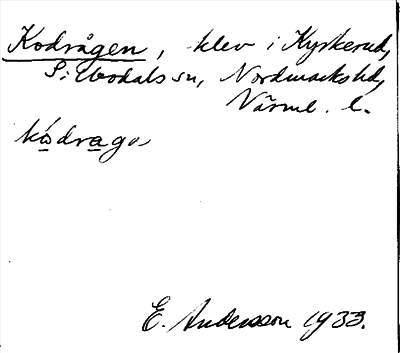 Kodrågen, klev i Kyrkerud,
Silbodals sn, Nordmarks hd,
Värml. l.
kódraga
E. Andersson 1933.